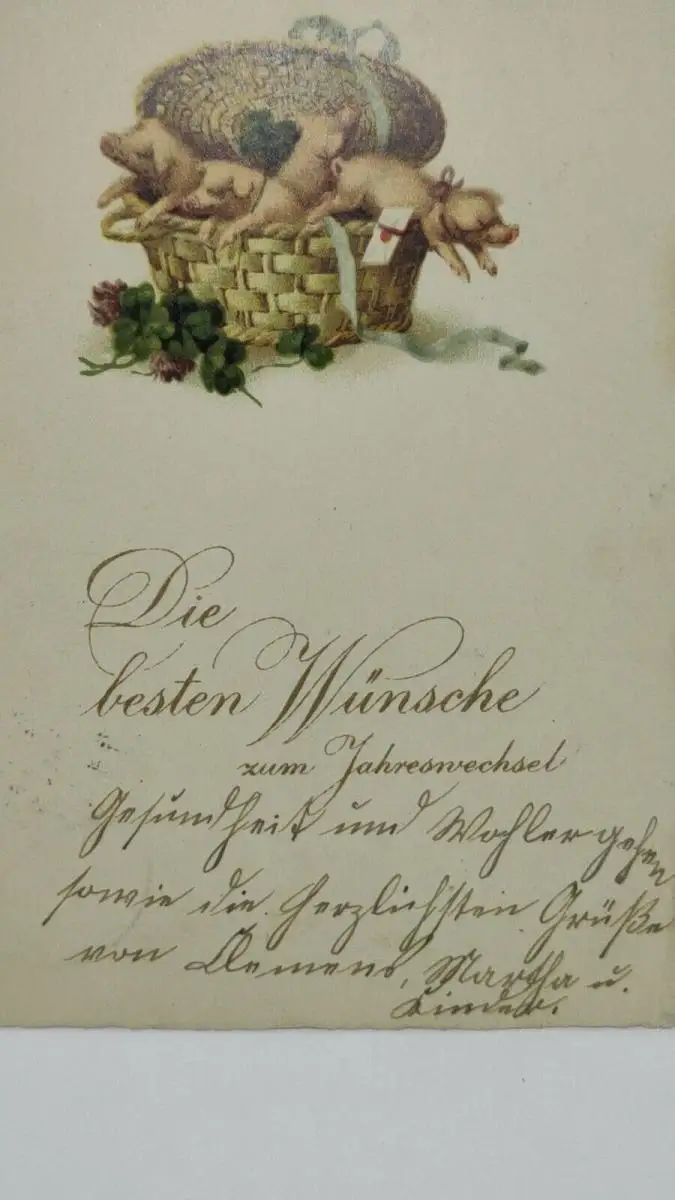 Die
besten Wünsche
zum Jahreswechsel
Gesundheit und Wohlergehen
sowie die herzlichsten Grüße
von Clemens, Martha u.
Kinder.